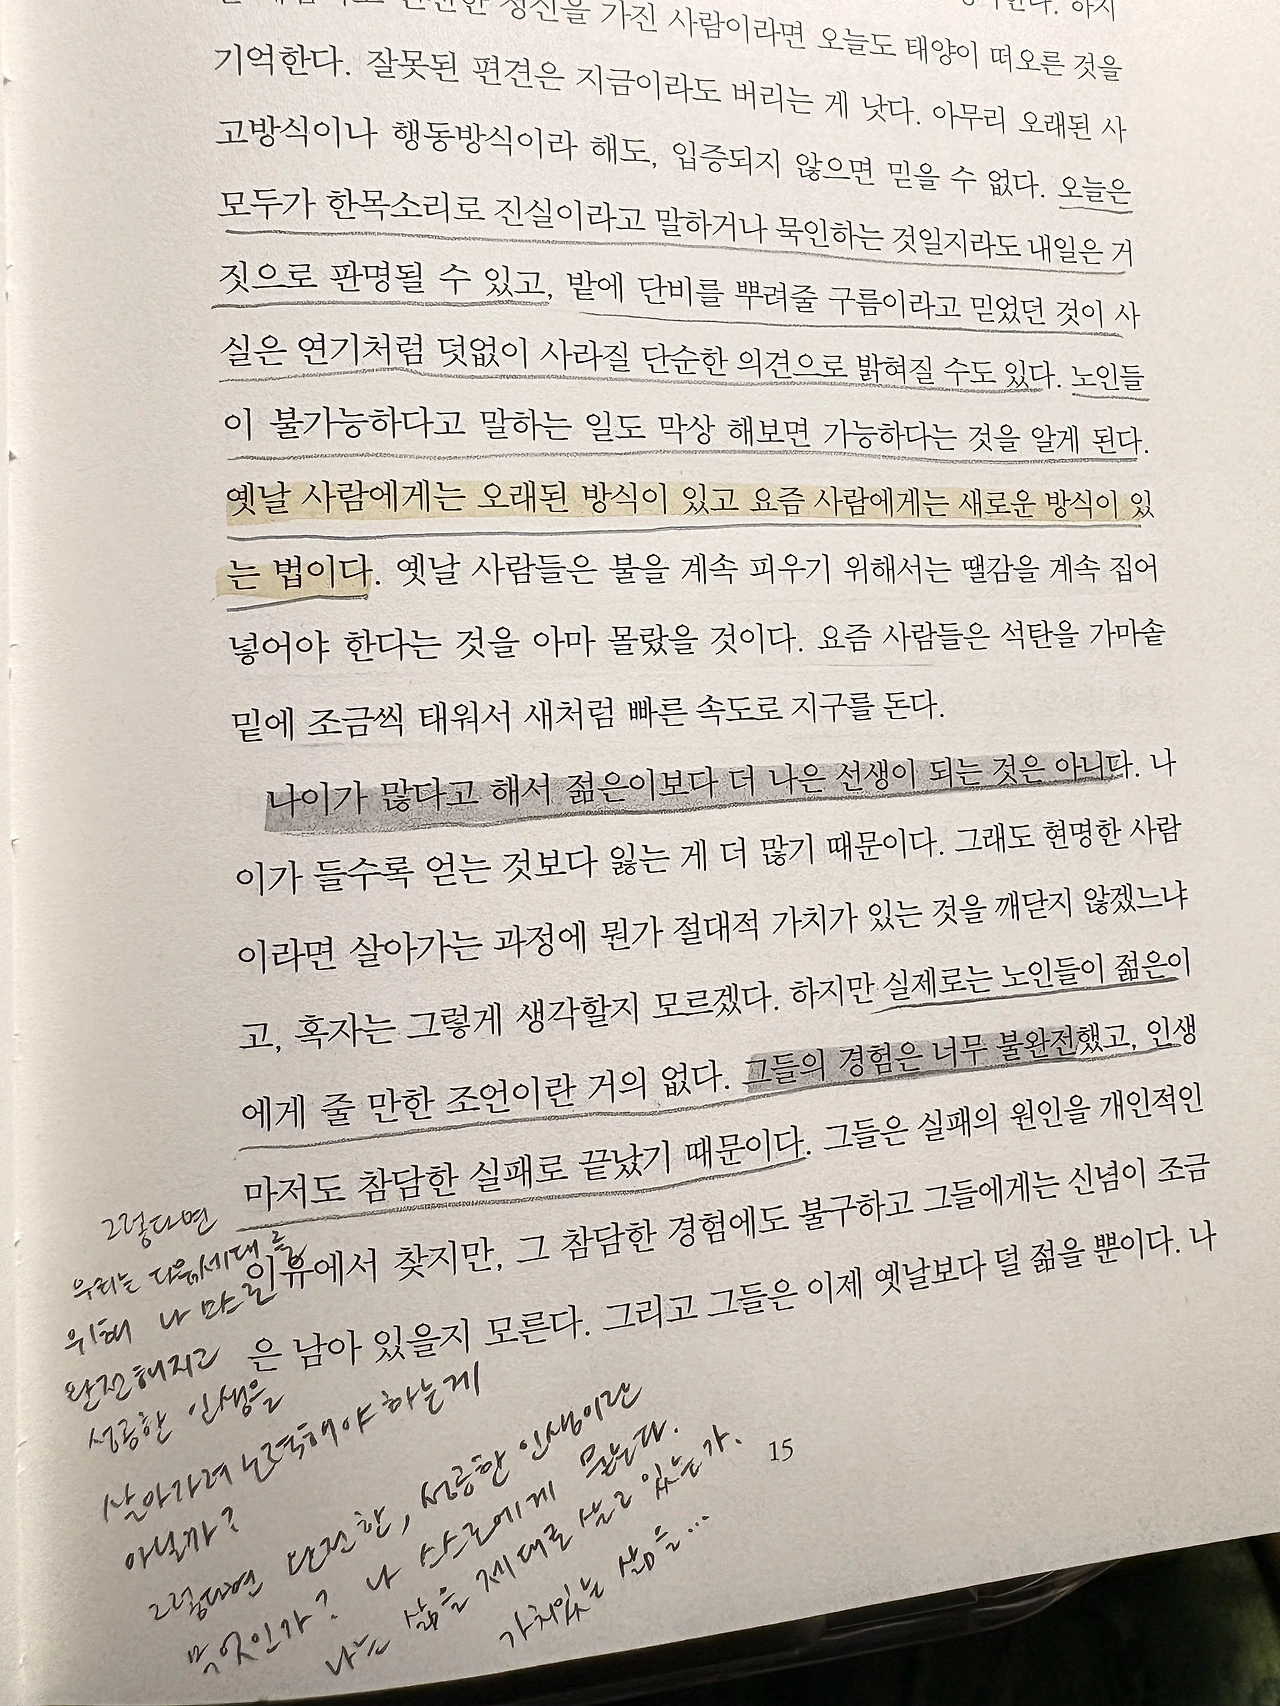 가진 사람이라면 오늘도 태양이 떠오른 것을
기억한다. 잘못된 편견은 지금이라도 버리는 게 낫다. 아무리 오래된 사
고방식이나 행동방식이라 해도, 입증되지 않으면 믿을 수 없다. 오늘은
모두가 한목소리로 진실이라고 말하거나 묵인하는 것일지라도 내일은 거
짓으로 판명될 수 있고, 밭에 단비를 뿌려줄 구름이라고 믿었던 것이 사
실은 연기처럼 덧없이 사라질 단순한 의견으로 밝혀질 수도 있다. 노인들
이 불가능하다고 말하는 일도 막상 해보면 가능하다는 것을 알게 된다.
옛날 사람에게는 오래된 방식이 있고 요즘 사람에게는 새로운 방식이 있
는 법이다. 옛날 사람들은 불을 계속 피우기 위해서는 땔감을 계속 집어
넣어야 한다는 것을 아마 몰랐을 것이다. 요즘 사람들은 석탄을 가마솥
밑에 조금씩 태워서 새처럼 빠른 속도로 지구를 돈다.
나이가 많다고 해서 젊은이보다 더 나은 선생이 되는 것은 아니다. 나
이가 들수록 얻는 것보다 잃는 게 더 많기 때문이다. 그래도 현명한 사람
이라면 살아가는 과정에 뭔가 절대적 가치가 있는 것을 깨닫지 않겠느냐
고, 혹자는 그렇게 생각할지 모르겠다. 하지만 실제로는 노인들이 젊은이
에게 줄 만한 조언이란 거의 없다. 그들의 경험은 너무 불완전했고, 인생
마저도 참담한 실패로 끝났기 때문이다. 그들은 실패의 원인을 개인적인
이유에서 찾지만, 그 참담한 경험에도 불구하고 그들에게는 신념이 조금
은 남아 있을지 모른다. 그리고 그들은 이제 옛날보다 덜 젊을 뿐이다. 나
그렇다면
우리는 다음세대를
위해 나 스스로
완전해지고
성공한 인생을
살아가려 노력해야 하는게
아닐까?
그렇다면 완전한, 성공한 인생이란
무엇인가? 나 스스로에게 묻는다.
나는 삶을 제대로 살고 있는가.
가치있는 삶을...
15